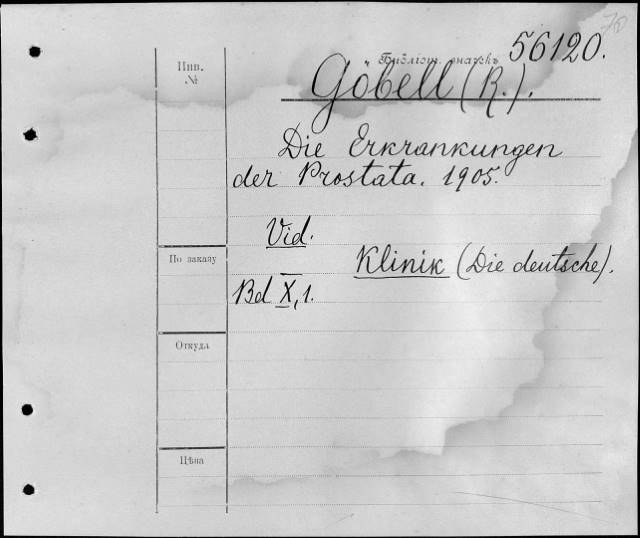 70
Библіот. значекъ 56120.
Инв.
№
Göbell (R.).
Die Erkrankungen
der Prostata. 1905.
Vid.
По заказу
Klinik (Die deutsche).
Bd X, 1.
Откуда
Цѣна